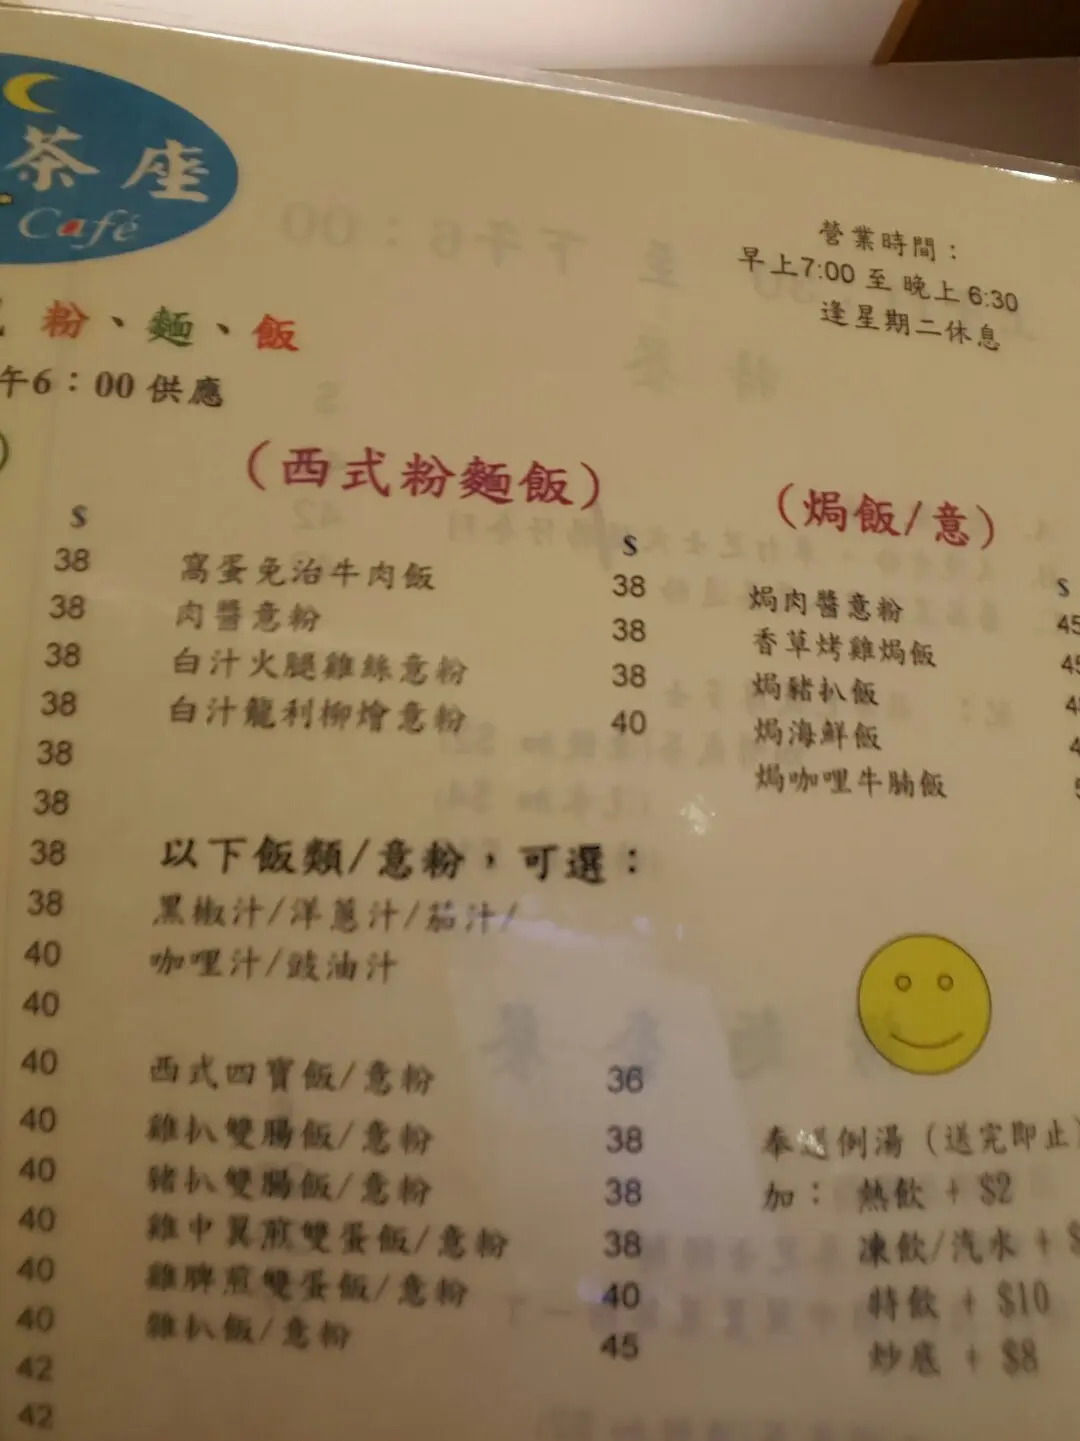 茶座
Café
粉、麵、飯
午6：00 供應
營業時間：
早上7:00 至 晚上 6:30
逢星期二休息
（西式粉麵飯）
（焗飯/意）
S
38
38
38
38
38
38
38
38
40
40
40
40
40
40
40
40
42
42
S
窩蛋免治牛肉飯 38
肉醬意粉 38
白汁火腿雞絲意粉 38
白汁龍利柳燴意粉 40
以下飯類/意粉，可選：
黑椒汁/洋蔥汁/茄汁/
咖哩汁/豉油汁
西式四寶飯/意粉 36
雞扒雙腸飯/意粉 38
豬扒雙腸飯/意粉 38
雞中翼煎雙蛋飯/意粉 38
雞脾煎雙蛋飯/意粉 40
雜扒飯/意粉 45
S
焗肉醬意粉 45
香草烤雞焗飯
焗豬扒飯
焗海鮮飯
焗咖哩牛腩飯
奉送例湯（送完即止）
加： 熱飲 + $2
凍飲/汽水 + $
特飲 + $10
炒底 + $8